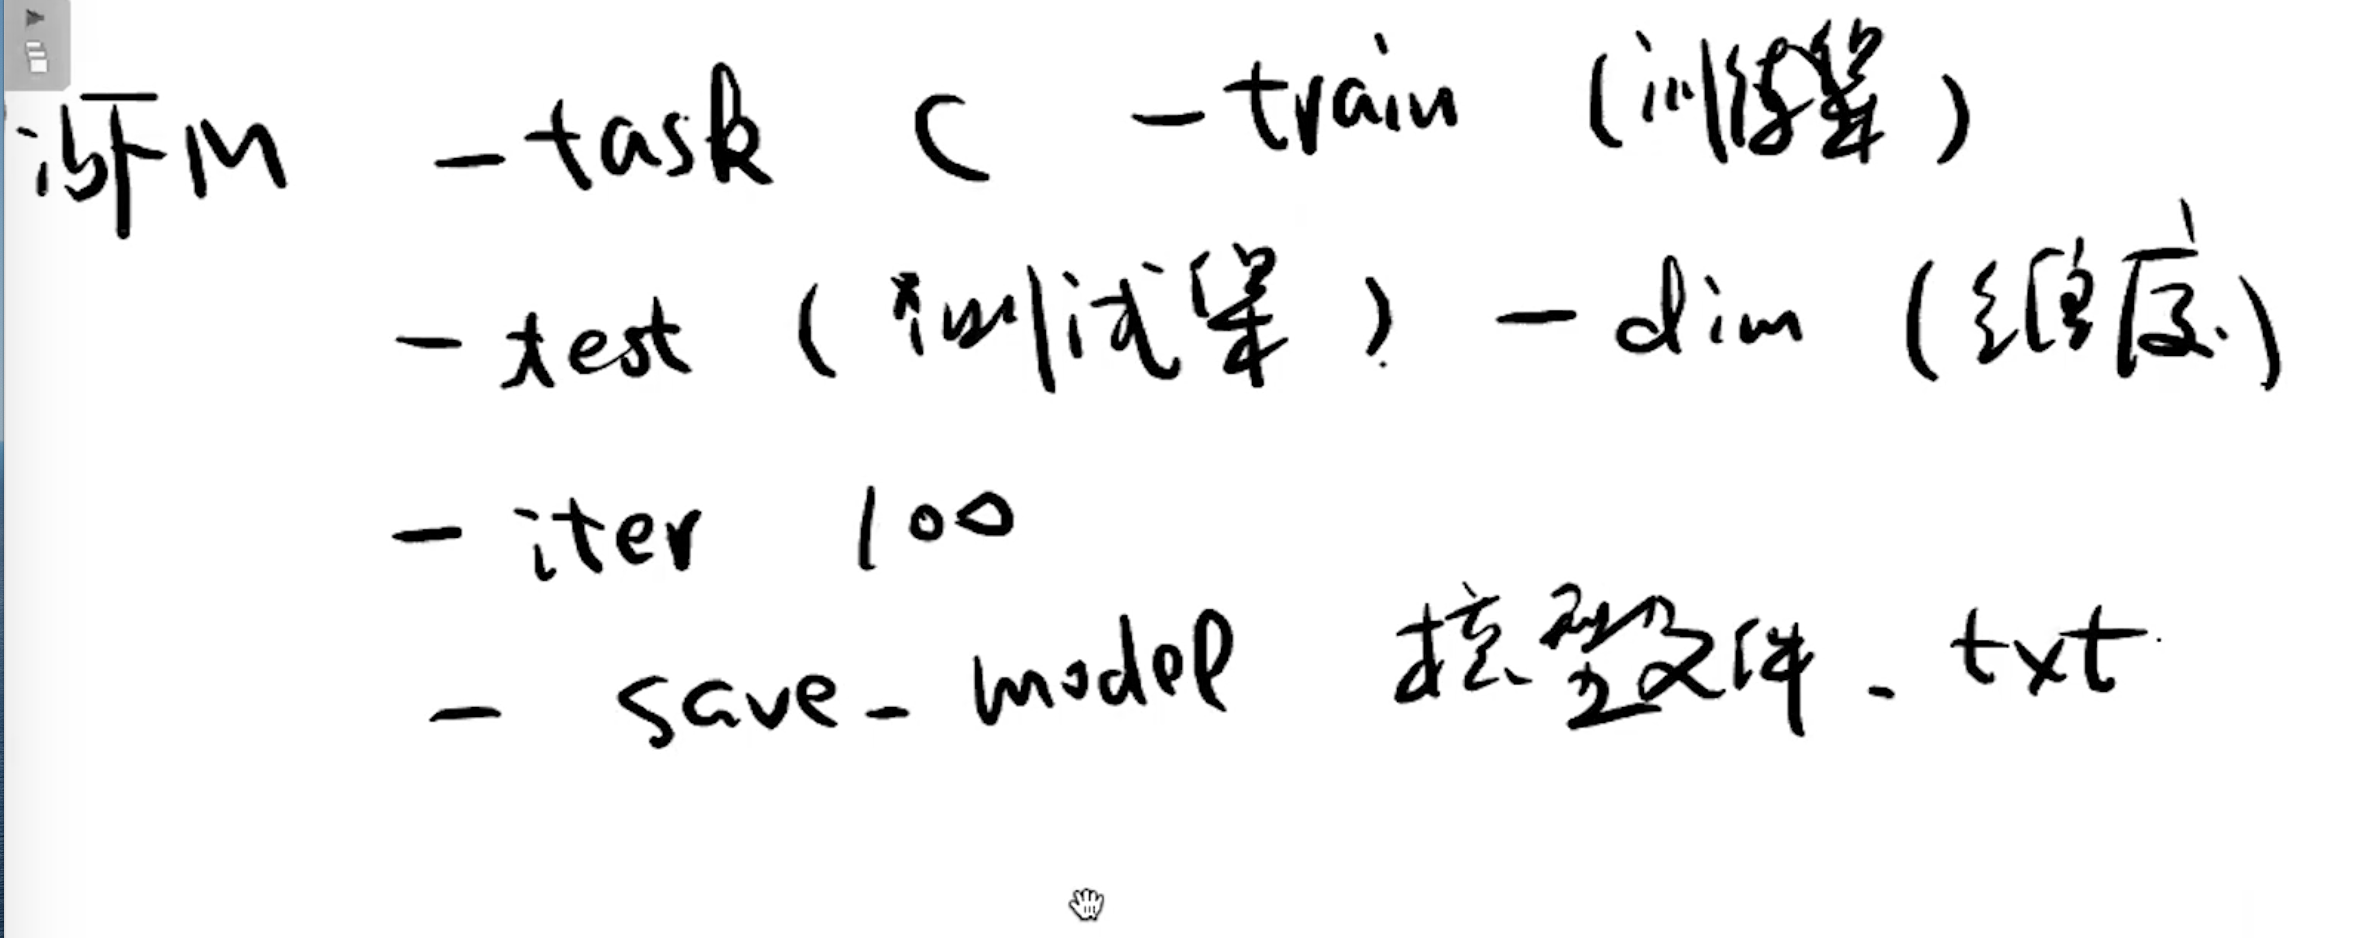 libFM -task c -train (训练集)
-test (测试集) -dim (维度)
-iter 100
- save_model 模型文件.txt